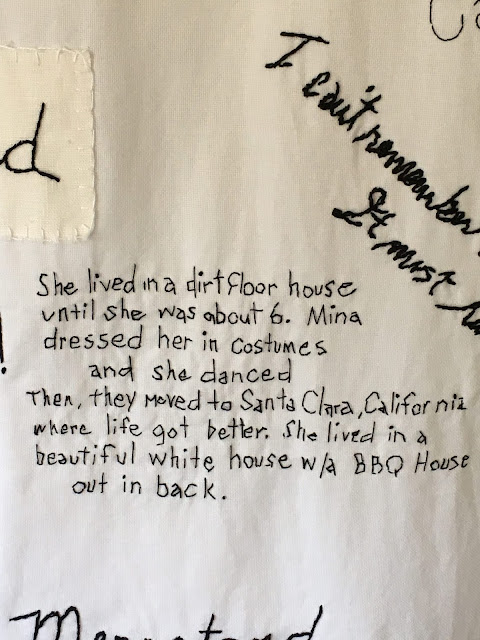 I can't remember
It must
d
She lived in a dirt floor house
until she was about 6. Mina
dressed her in costumes
and she danced
Then, they moved to Santa Clara, California
where life got better. She lived in a
beautiful white house w/a BBQ House
out in back.